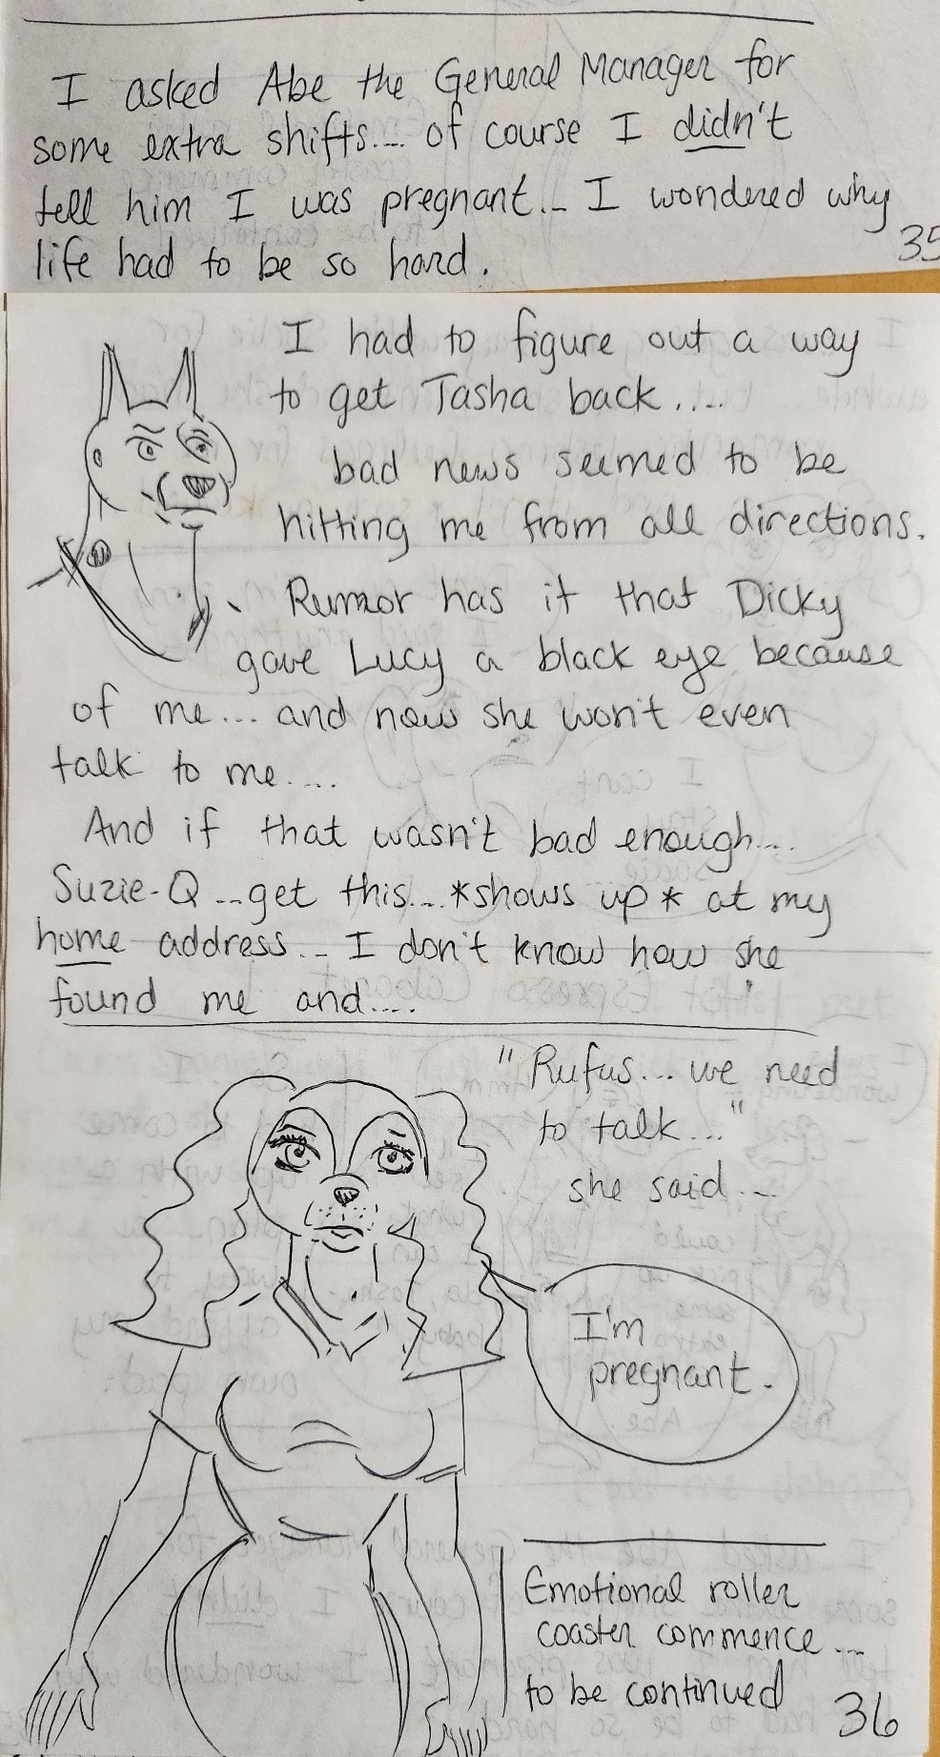 I asked Abe the General Manager for
some extra shifts.... of course I didn't
tell him I was pregnant... I wondered why
life had to be so hard.
35
I had to figure out a way
to get Tasha back.....
bad news seemed to be
hitting me from all directions.
Rumor has it that Dicky
gave Lucy a black eye because
of me.... and now she won't even
talk to me.....
And if that wasn't bad enough....
Suzie-Q ...get this....*shows up* at my
home address... I don't know how she
found me and.....
"Rufus... we need
to talk..."
she said...
I'm
pregnant.
Emotional roller
coaster commence....
to be continued
36